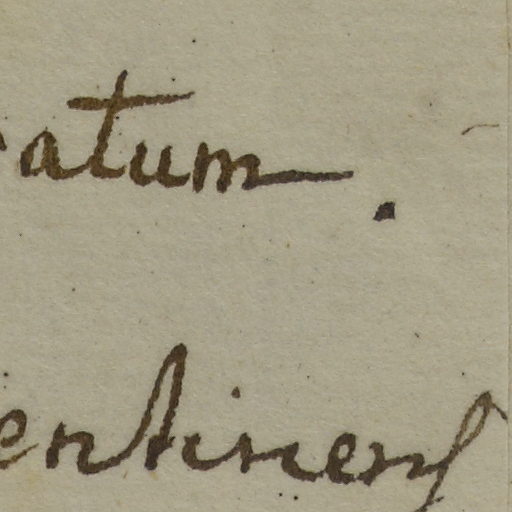 atum.
entinens